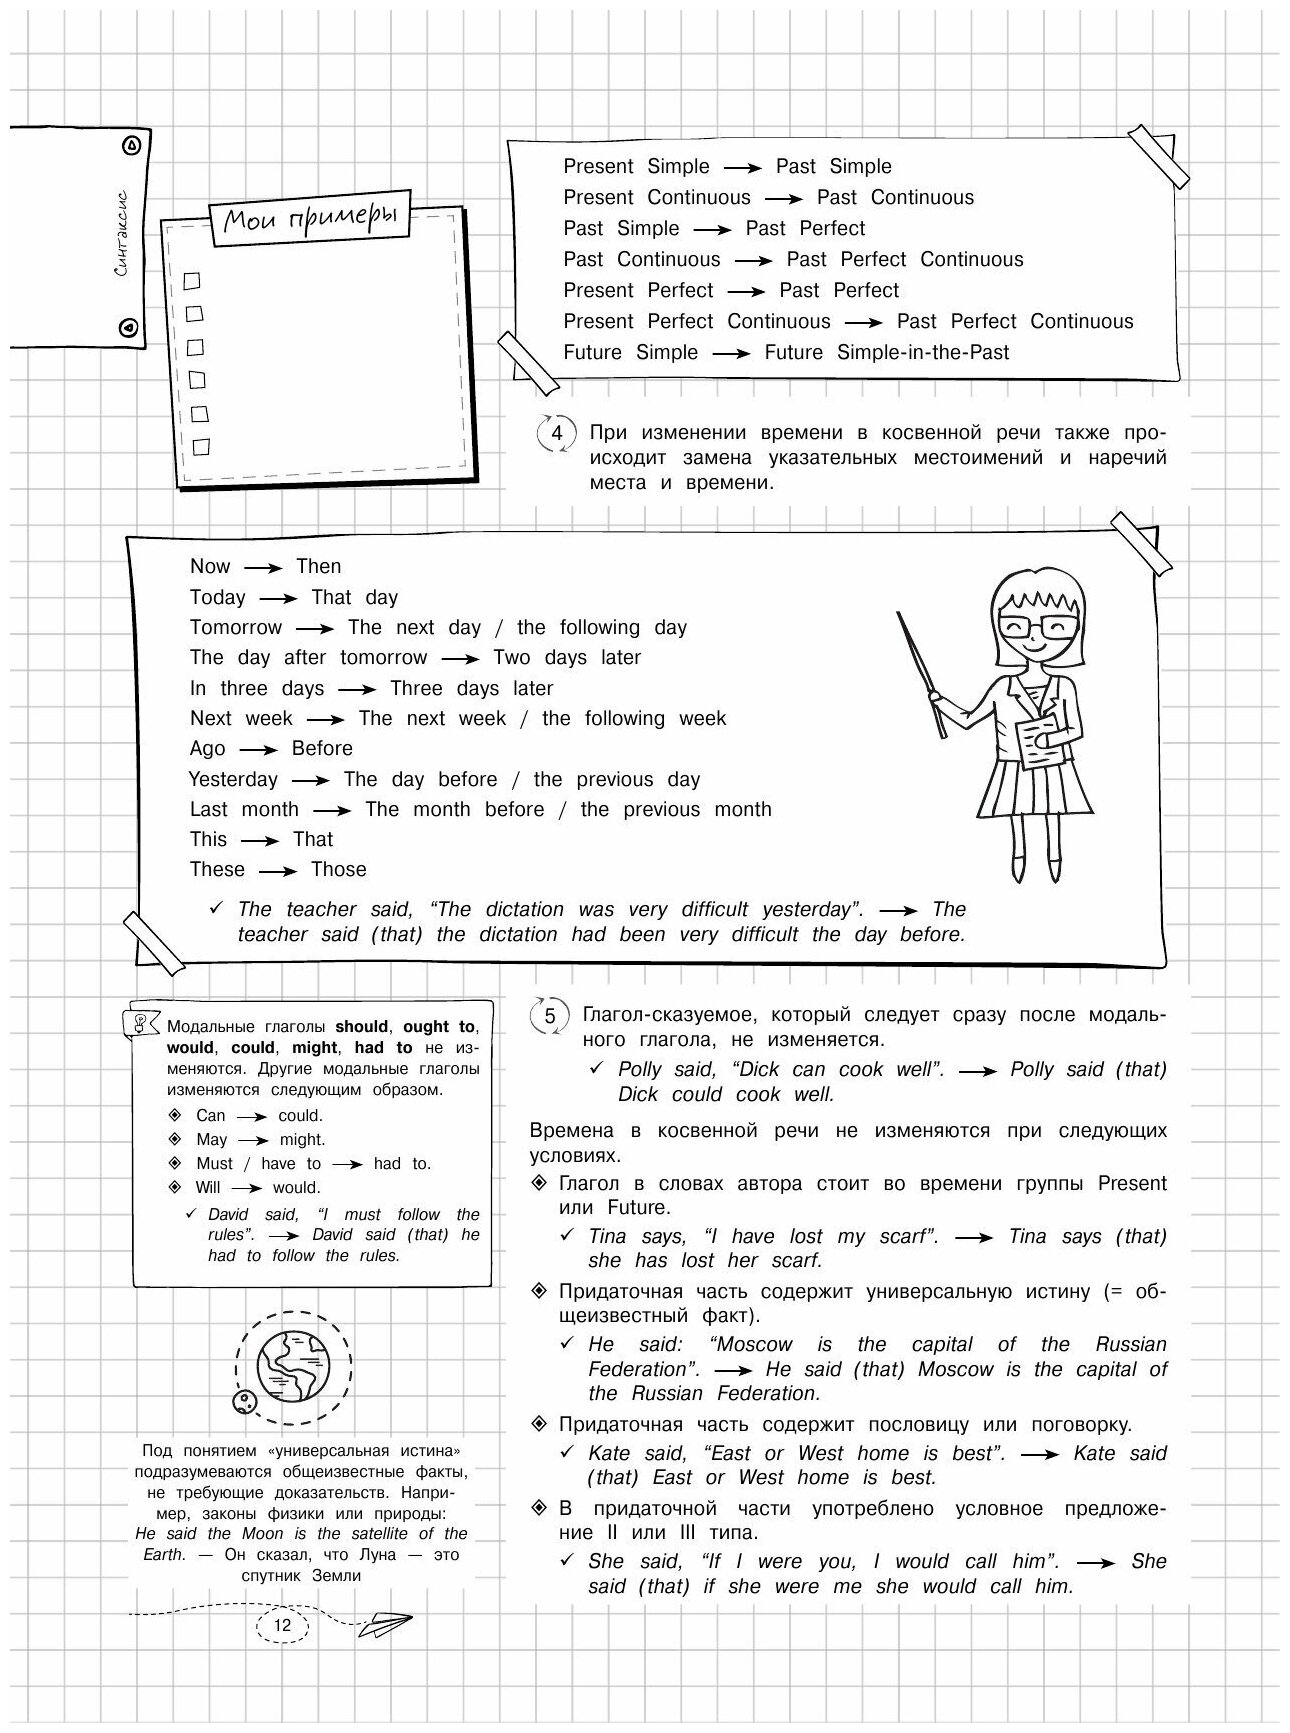 Синтаксис
Мои примеры
Present Simple → Past Simple
Present Continuous → Past Continuous
Past Simple → Past Perfect
Past Continuous → Past Perfect Continuous
Present Perfect → Past Perfect
Present Perfect Continuous → Past Perfect Continuous
Future Simple → Future Simple-in-the-Past
4 При изменении времени в косвенной речи также про-
исходит замена указательных местоимений и наречий
места и времени.
Now → Then
Today → That day
Tomorrow → The next day / the following day
The day after tomorrow → Two days later
In three days → Three days later
Next week → The next week / the following week
Ago → Before
Yesterday → The day before / the previous day
Last month → The month before / the previous month
This → That
These → Those
✓ The teacher said, “The dictation was very difficult yesterday”. → The
teacher said (that) the dictation had been very difficult the day before.
Модальные глаголы should, ought to,
would, could, might, had to не из-
меняются. Другие модальные глаголы
изменяются следующим образом.
Can → could.
May → might.
Must / have to → had to.
Will → would.
✓ David said, “I must follow the
rules”. → David said (that) he
had to follow the rules.
Под понятием «универсальная истина»
подразумеваются общеизвестные факты,
не требующие доказательств. Напри-
мер, законы физики или природы:
He said the Moon is the satellite of the
Earth. — Он сказал, что Луна — это
спутник Земли
5 Глагол-сказуемое, который следует сразу после модаль-
ного глагола, не изменяется.
✓ Polly said, “Dick can cook well”. → Polly said (that)
Dick could cook well.
Времена в косвенной речи не изменяются при следующих
условиях.
Глагол в словах автора стоит во времени группы Present
или Future.
✓ Tina says, “I have lost my scarf”. → Tina says (that)
she has lost her scarf.
Придаточная часть содержит универсальную истину (= об-
щеизвестный факт).
✓ He said: “Moscow is the capital of the Russian
Federation”. → He said (that) Moscow is the capital of
the Russian Federation.
Придаточная часть содержит пословицу или поговорку.
✓ Kate said, “East or West home is best”. → Kate said
(that) East or West home is best.
В придаточной части употреблено условное предложе-
ние II или III типа.
✓ She said, “If I were you, I would call him”. → She
said (that) if she were me she would call him.
12